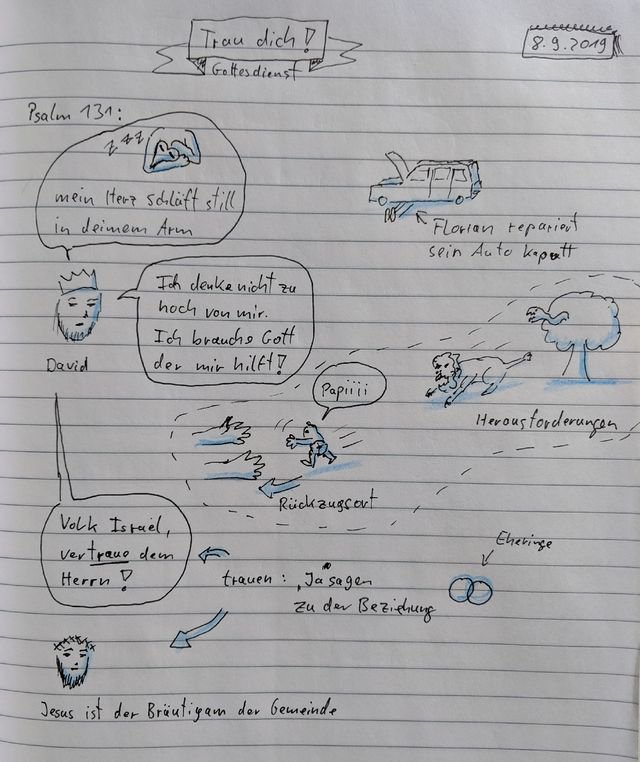 Trau dich!
Gottesdienst
8.9.2019
Psalm 131:
z z z
mein Herz schläft still
in deinem Arm
Florian repariert
sein Auto kaputt
Ich denke nicht zu
hoch von mir.
Ich brauche Gott
der mir hilft!
David
Papiiii
Herausforderungen
Rückzugsort
Volk Israel,
vertraue dem
Herrn!
trauen: "Ja" sagen
zu der Beziehung
Eheringe
Jesus ist der Bräutigam der Gemeinde